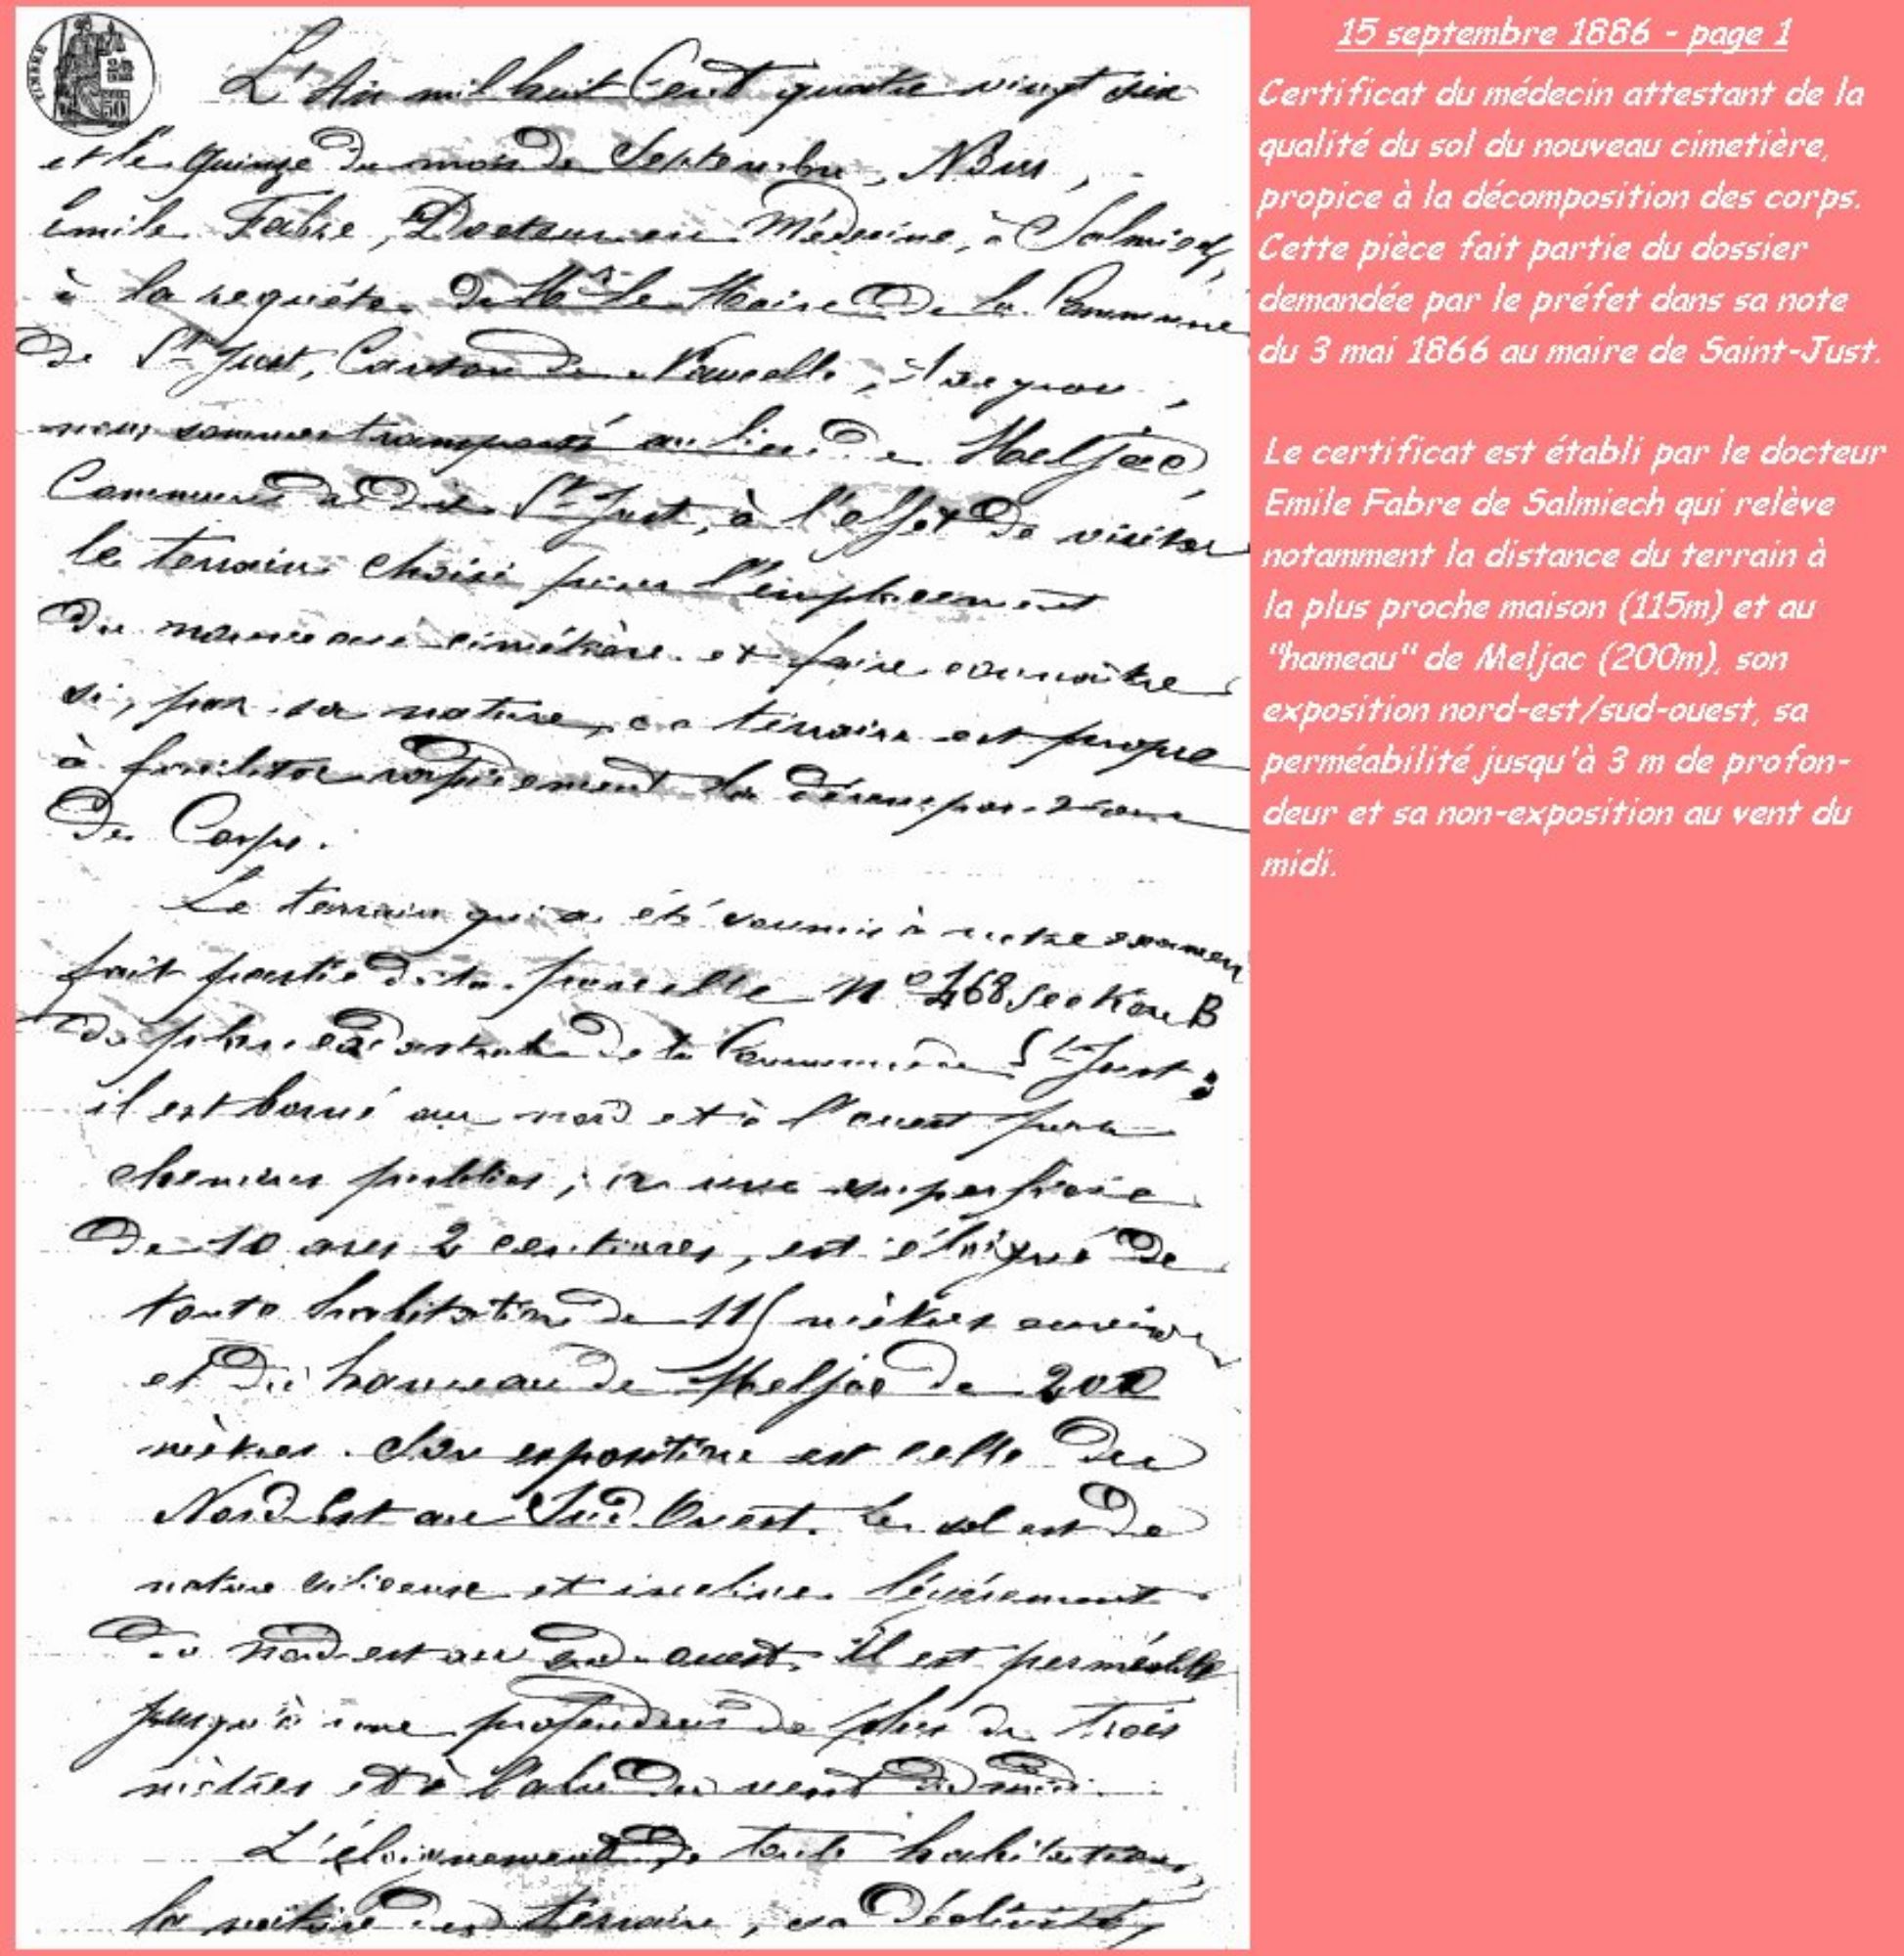 TIMBRE
50
L'An mil huit Cent quatre vingt six
et le quinze du mois de Septembre, Nous,
Emile Fabre, Docteur en Médecine, à Salmiech,
à la requête de Mr le Maire de la Commune
de St Just, Canton de Naucelle, Aveyron,
nous sommes transporté au lieu de Meljac,
Commune de St Just, à l'effet de visiter
le terrain choisi pour l'emplacement
du nouveau cimetière et faire connaître
si, par sa nature, ce terrain est propre
à faciliter rapidement la décomposition
des Corps.
Le terrain qui a été soumis à notre examen
fait partie de la parcelle n° 468 Section B
du plan cadastral de la Commune de St Just;
il est borné au nord et à l'ouest par
chemins publics; a une superficie
de 10 ares 2 centiares, est éloigné de
toute habitation de 115 mètres environ
et du hameau de Meljac de 200
mètres. Son exposition est celle du
Nord Est au Sud Ouest. Le sol est de
nature siliceuse et incline légèrement
du nord-est au sud-ouest. Il est perméable
jusqu'à une profondeur de plus de trois
mètres et à l'abri du vent du midi.
L'éloignement de toute habitation,
la nature du terrain, sa déclivité,
15 septembre 1886 - page 1
Certificat du médecin attestant de la
qualité du sol du nouveau cimetière,
propice à la décomposition des corps.
Cette pièce fait partie du dossier
demandée par le préfet dans sa note
du 3 mai 1866 au maire de Saint-Just.
Le certificat est établi par le docteur
Emile Fabre de Salmiech qui relève
notamment la distance du terrain à
la plus proche maison (115m) et au
"hameau" de Meljac (200m), son
exposition nord-est/sud-ouest, sa
perméabilité jusqu'à 3 m de profon-
deur et sa non-exposition au vent du
midi.